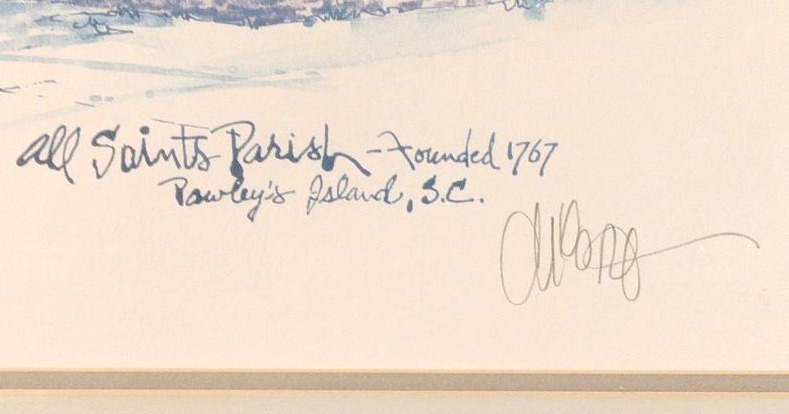 All Saints Parish - Founded 1767
Pawley's Island, S.C.